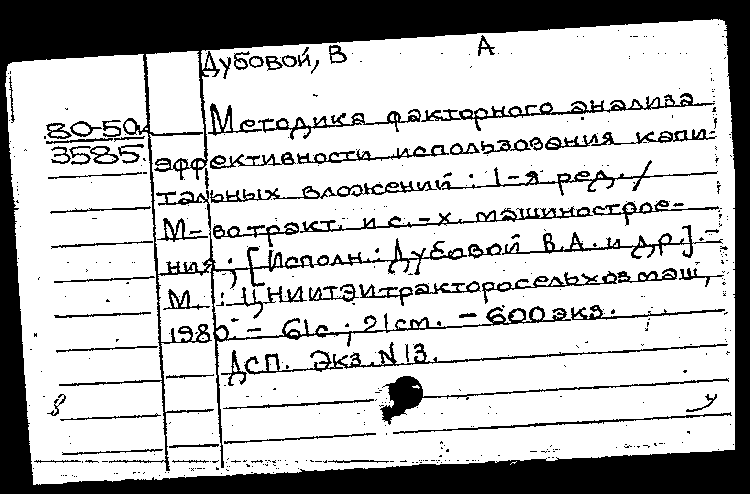 Дубовой, В А
80-50к
3585
Методика факторного анализа
эффективности использования капи-
тальных вложений : 1-я ред. /
М-во тракт. и с.-х. машинострое-
ния ; [Исполн.: Дубовой В.А. и др.]. -
М. : ЦНИИТЭИтракторосельхозмаш,
1980. - 61с ; 21см. - 600экз.
ДСП. Экз. N 13.